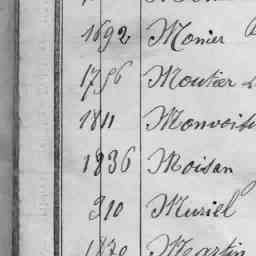 1692 Monier
1756 Moutier
1811 Monvoisin
1836 Moisan
910 Muriel
1870 Martin